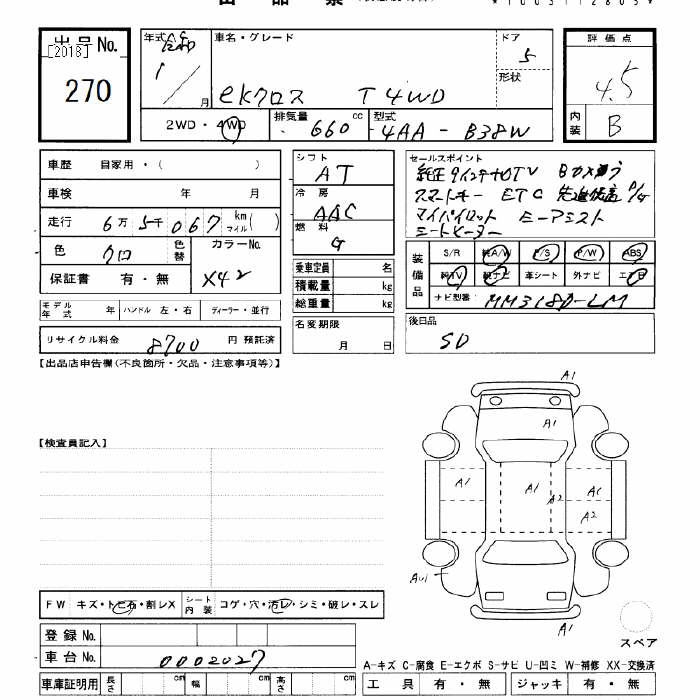 出品No. [2018] 270
年式 1 月
車名・グレード ekクロス T 4WD
ドア 5
形状
評価点 4.5
内装 B
2WD・4WD
排気量 660 cc
型式 4AA-B38W
車歴 自家用・( )
車検 年 月
走行 6万5千067 km マイル( )
色 クロ 色替
カラーNo. X42
保証書 有・無
モデル年式 年 ハンドル 左・右 ディーラー・並行
リサイクル料金 8700 円 預託済
シフト AT
冷房 AAC
燃料 G
乗車定員 名
積載量 kg
総重量 kg
名変期限 月 日
セールスポイント
純正9インチナビTV Bカメラ
スマートキー ETC
マイパイロット
シートヒーター
装備品 S/R 純A/W P/S P/W ABS
純TV 純ナビ 革シート 外ナビ エアB
ナビ型番 MM318D-LM
後日品
SD
【出品店申告欄(不良箇所・欠品・注意事項等)】
【検査員記入】
A1
A1
A1 A1 A2 A1
A2
A1
スペア
FW キズ・トビ石・割レX シート内装 コゲ・穴・汚レ・シミ・破レ・スレ
登録No.
車台No. 0002027
車庫証明用 長さ cm 幅 cm 高さ cm
A-キズ C-腐食 E-エクボ S-サビ U-凹ミ W-補修 XX-交換済
工具 有・無 ジャッキ 有・無